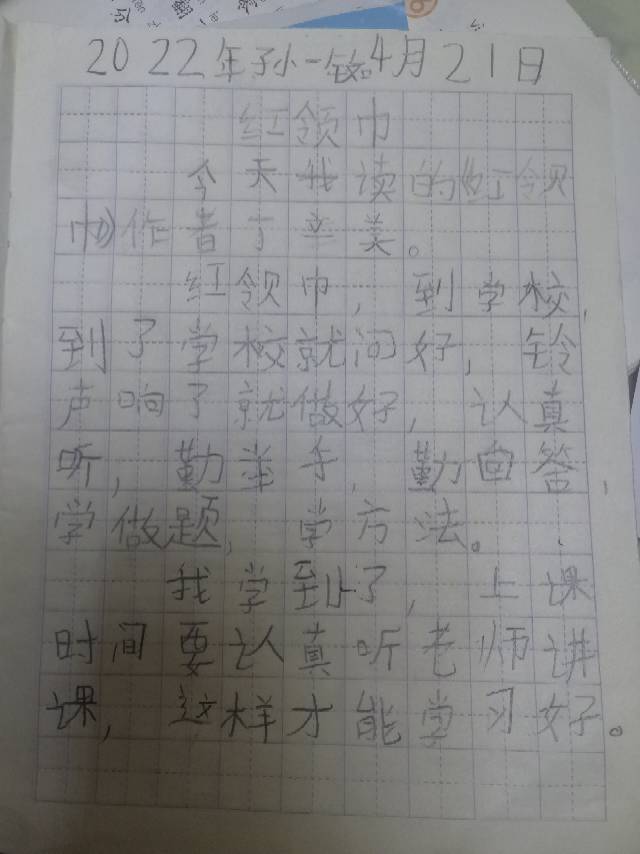 2022年孙一铭4月21日
红领巾
今天我读的《红领
巾》作者丁立美。
红领巾,到学校,
到了学校就问好,铃
声响了就做好,认真
听,勤举手,勤回答,
学做题,学方法。
我学到了,上课
时间要认真听老师讲
课,这样才能学习好。